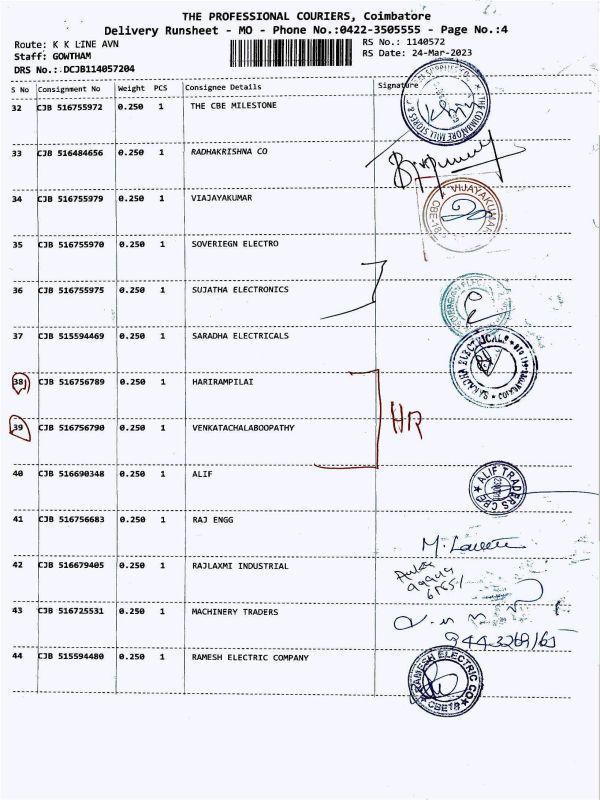 THE PROFESSIONAL COURIERS, Coimbatore
Delivery Runsheet - MO - Phone No.:0422-3505555 - Page No.:4
Route: K K LINE AVN
RS No.: 1140572
Staff: GOWTHAM
RS Date: 24-Mar-2023
DRS No.: DCJB114057204
S No Consignment No Weight PCS Consignee Details Signature
32 CJB 516755972 0.250 1 THE CBE MILESTONE
THE COIMBATORE MILL STORES &
33 CJB 516484656 0.250 1 RADHAKRISHNA CO
34 CJB 516755979 0.250 1 VIAJAYAKUMAR
VIJAYAKUMAR CBE-18
35 CJB 516755970 0.250 1 SOVERIEGN ELECTRO
36 CJB 516755975 0.250 1 SUJATHA ELECTRONICS
37 CJB 515594469 0.250 1 SARADHA ELECTRICALS
SARADHA ELECTRICALS
38 CJB 516756789 0.250 1 HARIRAMPILAI
HR
39 CJB 516756790 0.250 1 VENKATACHALABOOPATHY
40 CJB 516690348 0.250 1 ALIF
ALIF TRADERS CBE
41 CJB 516756683 0.250 1 RAJ ENGG
42 CJB 516679405 0.250 1 RAJLAXMI INDUSTRIAL
43 CJB 516725531 0.250 1 MACHINERY TRADERS
44 CJB 515594480 0.250 1 RAMESH ELECTRIC COMPANY
RAMESH ELECTRIC CO CBE18